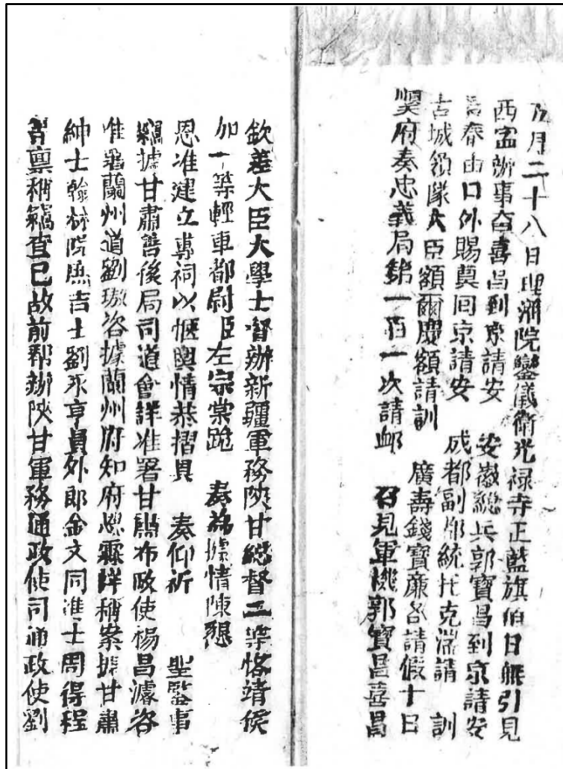 五月二十八日理藩院鑾儀衛光祿寺正藍旗值日無引見
西寧辦事大臣喜昌到京請安　安徽總兵郭寶昌到京請安
春由口外賜奠回京請安　成都副都統托克湍請　訓
古城領隊大臣額爾慶額請訓　廣壽錢寶廉各請假十日
府奏忠義局第一百一次請卹　召見軍機郭寶昌喜昌
欽差大臣大學士督辦新疆軍務陝甘總督二等恪靖侯
加一等輕車都尉臣左宗棠跪　奏為據情陳懇
恩准建立專祠以愜輿情恭摺具　奏仰祈　聖鑒事
竊據甘肅善後局司道會詳准署甘肅布政使楊昌濬咨
准署蘭州道劉璈咨據蘭州府知府恩霖詳稱案據甘肅
紳士翰林院庶吉士劉永亨員外郎金文同進士周得程
等稟稱竊查已故前幫辦陝甘軍務通政使司通政使劉